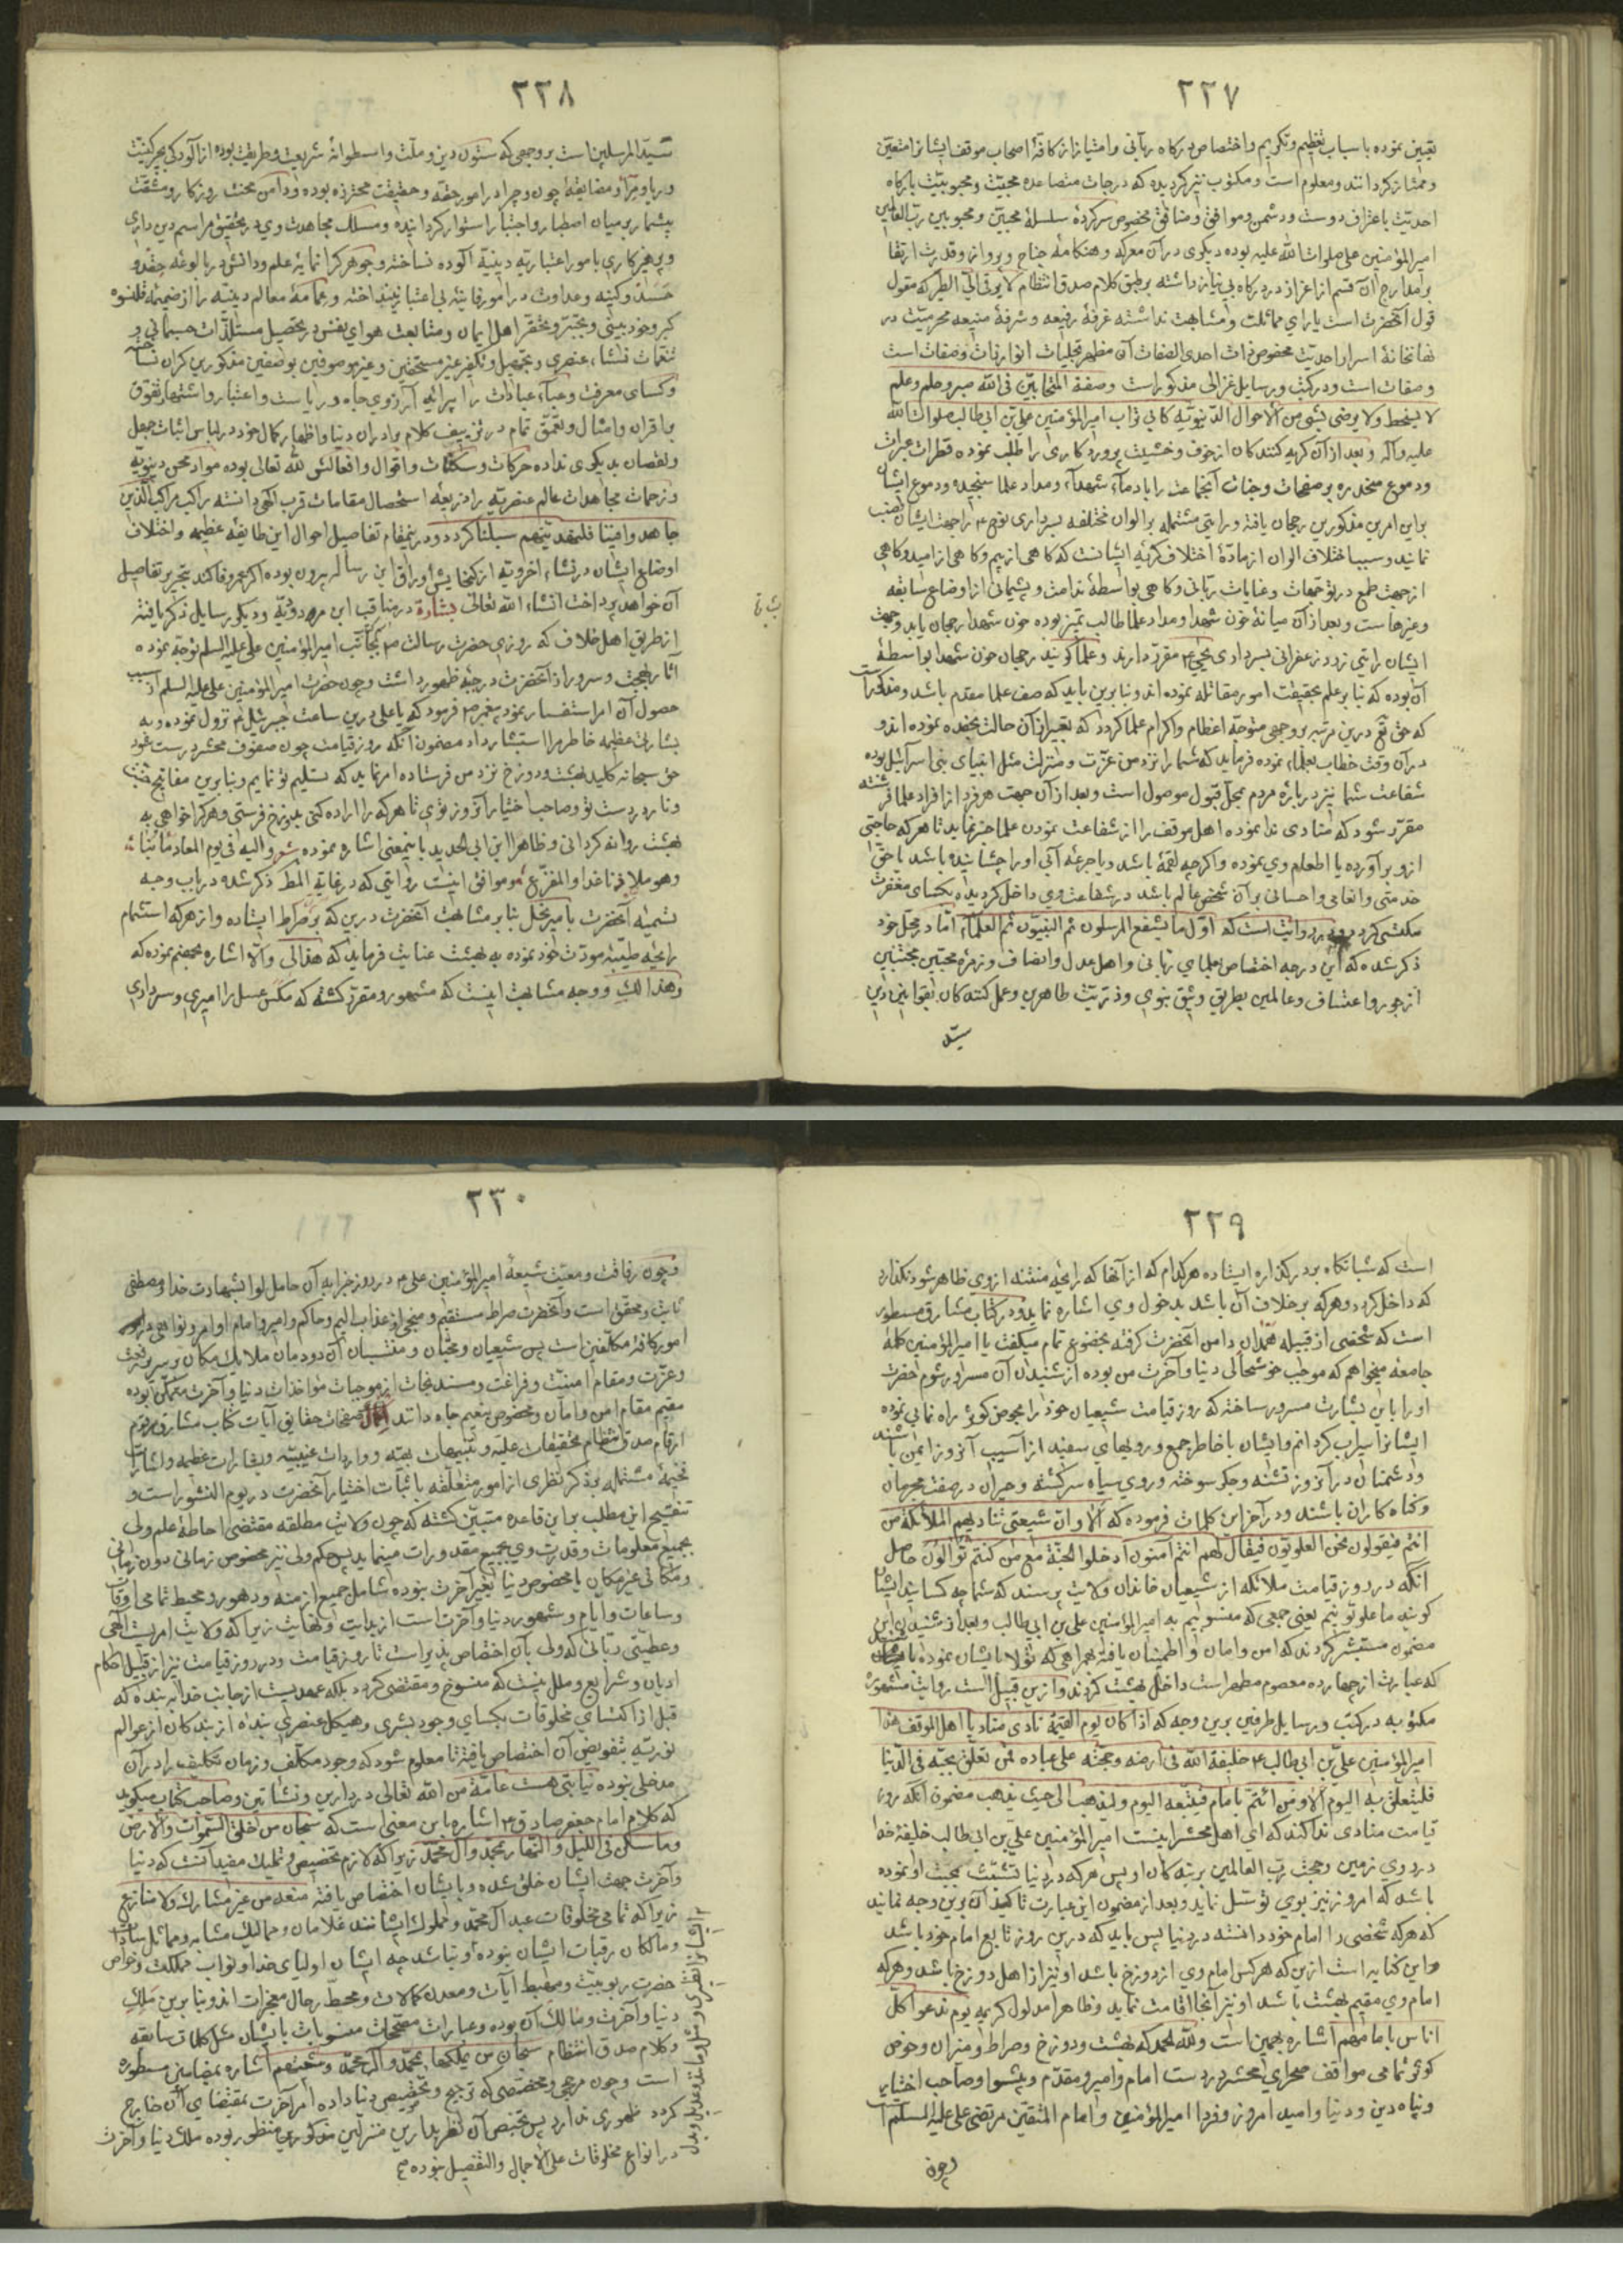 ٢٢٧
تعیین نموده باسباب تعظیم وتکریم واختصاص درکاه ربانی وامتیاز از کافهٔ اصحاب موقف ایشانرا متعین
وممتاز کردانند ومعلوم است ومکتوب نیز کردیده که درجات متصاعده محبیّت ومحبوبیّت بارکاه
احدیّت باعتراف دوست ودشمن وموافق ومنافق مخصوص سرکردهٔ سلسلهٔ محبین ومحبوبین رب العالمین
امیرالمؤمنین علی صلوات الله علیه بوده دیکری در آن معرکه وهنکامه جناح وپرواز وقدرت ارتقا
بر مدارج آن قسم از اعزاز در درکاه بی نیاز نداشته بر طبق کلام صدق انتظام لا یرقی الیّ الطیر که مقول
قول آنحضرت است یارای مماثلت ومشابهت نداشته غرفهٔ رفیعه وشرفهٔ منیعه محرمیّت در
نهانخانهٔ اسرار احدیّت مخصوص ذات احدی الصفات آن مظهر تجلیات انوار ذات وصفات است
وصفات است ودر کتب ورسایل غزالی مذکور است وصفة المتحابّین فی الله صبر وحلم وعلم
لا یسخط ولا یرضی بشی من الاحوال الدنیویّه کابی تراب امیرالمؤمنین علی بن ابی طالب صلوات الله
علیه وآله وبعد از آن کریه کنندکان از خوف وخشیت پروردکاری را طلب نموده قطرات عبرات
ودموع منحدره بر صفحات وجنات آنجماعت را با دماء شهداء ومداد علما سنجیده ودموع ایشان
براین امرین مذکورین رجحان یافته ورایتی مشتمله بر الوان مختلفه بسرداری نوح ع را جهت ایشان نصب
نمایند وسبب اختلاف الوان از مادّهٔ اختلاف کریهٔ ایشانست که کاهی از بیم وکاهی از امید وکاهی
از جهت طمع در توقعات وعنایات ربّانی وکاهی بواسطهٔ ندامت وپشیمانی از اوضاع سابقه
وغیرهاست وبعد از آن میانهٔ خون شهدا ومداد علما طالب تمیز بوده خون شهدا رجحان یابد وجهت
ایشان رایتی زرد زعفرانی بسرداری یحیی ع مقرر دارند وعلما کویند رجحان خون شهدا بواسطهٔ
آن بوده که بنا بر علم بحقیقت امور مقاتله نموده اند وبنا برین باید که صف علما مقدم باشد ومذکور است
که حق تع درین مرتبه بر وجهی متوجه اعظام واکرام علما کردد که تعبیر از آن حالت بخنده نموده اند و
در آن وقت خطاب بعلماء نموده فرماید که شما را نزد من عزّت ومنزلت مثل انبیای بنی اسرائیل بوده
شفاعت شما نیز در بارهٔ مردم محل قبول موصول است وبعد از آن جهت هر فرد از افراد علما فرشته
مقرّر شود که منادی ندا نموده اهل موقف را از شفاعت نمودن علما خبر نماید تا هر که حاجتی
از و بر آورده یا اطعام وی نموده واکرچه لقمهٔ باشد ویا جرعهٔ آبی او را چشانیده باشد یا حقّ
خدمتی وانعامی واحسانی بر آن شخص عالم باشد در شفاعت وی داخل کردیده بکسای مغفرت
مکتسی کردد در روایت است که اوّل ما یشفع المرسلون ثم النبیّون ثم العلماء امّا در محلّ خود
ذکر شده که این درجه اختصاص بعلمای ربانی واهل عدل وانصاف وزمرهٔ محبّین مجتنبین
از جور واعتساف وعالمین بطریق وثیق نبوی وذرّیّت طاهرین وعمل کننده کان بقوانین دین
سید
٢٢٨
سیّد المرسلین است بر وجهی که ستون دین وملّت واسطوانهٔ شریعت وطریقت بوده از آلودکی بجرکنیت
وریا ومراء ومضایقه چون وچرا در امور حقّه وحقیقت محترز بوده ودامن محنت روزکار ومشقت
بیشمار بر میان اصطبار واجتبار استوار کردانیده ومسلک مجاهدت وی در تحقیق مراسم دین داری
وپرهیزکاری بامور اعتباریّه دینیّه آلوده نساخته وجوهر کرانمایهٔ علم ودانش در بالوعهٔ حقد و
حسد وکینه وعداوت در امور فانیهٔ بی اعتبار نینداخته وعمامهٔ معالم دینیّه را از ضمیمهٔ قلنسوه
کبر وخود بینی وتجبّر وتحقّر اهل ایمان ومتابعت هوای نفس در تحصیل مستلذّات جسمانی و
تنعمات نشاء عنصری وتجهیل وتکفیر غیر مستحقین وغیر موصوفین بوصفین مذکورین کران نساخته
وکسای معرفت وعباء عبادات را پیرایهٔ آرزوی جاه وریاست واعتبار واشتهار وتفوّق
بر اقران وامثال وتعمّق تمام در تزییف کلام برادران دینا واظهار کمال خود در لباس اثبات جهل
ونقصان بدیکری نداده حرکات وسکنات واقوال وافعالش لله تعالی بوده مواد محن دنیویّه
وزحمات مجاهدات عالم عنصریّه را ذریعهٔ استحصال مقامات قرب الهی دانسته راکب مراکب الذین
جاهدوا فینا فلنهدینّهم سبلنا کردد ودرینمقام تفاصیل احوال این طایفهٔ عظیمه واختلاف
اوضاع ایشان در نشاء اخرویّه از کنجایش اوراق این رساله بیرون بوده اکر عمر وفا کند بتحریر تفاصیل
آن خواهد پرداخت انشاء الله تعالی بشارة در مناقب ابن مردویّه ودیکر رسایل ذکر یافته
از طریق اهل خلاف که روزی حضرت رسالت ص بجانب امیرالمؤمنین علی علیه السلم توجّه نموده
آثار بهجت وسرور از آنحضرت در جبهٔ ظهور داشت وچون حضرت امیرالمؤمنین علی علیه السلم از سبب
حصول آن امر استفسار نمود پیغمبر ص فرمود که یا علی درین ساعت جبرئیل ع نزول نموده وبه
بشارتی عظیمه خاطر مرا استبشار داد مضمون آنکه روز قیامت چون صفوف محشر درست شود
حق سبحانه کلید بهشت ودوزخ نزد من فرستاده امر نماید که بتسلیم تو نمایم وبنابرین مفاتیح جنّت
ونار در دست تو وصاحب اختیار آنروز توی تا هر که را اراده کنی بدوزخ فرستی وهر که را خواهی به
بهشت روانه کردانی وظاهرا ابن ابی الحدید باینمعنی اشاره نموده شعر والیه فی یوم المعاد مآبنا
وهو ملاذنا غدا والمفزع وموافق اینست روایتی که در غایة المطلب ذکر شده در باب وجه
تسمیهٔ آنحضرت بامیر نحل بنا بر مشابهت آنحضرت درین که بر صراط ایستاده واز هر که استشمام
رایحهٔ طیبهٔ مودّت خود نموده به بهشت عنایت فرماید که هذا لی والّا اشاره بجهنم نموده که
وهذا لک ووجه مشابهت اینست که مشهور ومقرّر کشته که مکس عسل را امیری وسرداری
٢٢٩
است که شبانکاه بر در کندو ایستاده هر کدام که از آنها که رایحهٔ منتنه از وی ظاهر شود نکذارد
که داخل کردد وهر که بر خلاف آن باشد بدخول وی اشاره نماید ودر کتاب مشارق مسطور
است که شخصی از قبیله همدان دامن آنحضرت کرفته بخضوع تمام میکفت یا امیرالمؤمنین کلمهٔ
جامعه میخواهم که موجب خوشحالی دنیا وآخرت من بوده از شنیدن آن مسرور شوم حضرت
او را باین بشارت مسرور ساخته که روز قیامت شیعیان خود را بحوض کوثر راه نمایی نموده
ایشانرا سیراب کردانم وایشان با خاطر جمع ورویهای سفید از آسیب آنروز ایمن باشند
ودشمنان در آنروز تشنه وجکر سوخته وروی سیاه سرکشته وحیران در صفت مجرمان
وکناه کاران باشند ودر آخر این کلمات فرموده که ألا وان شیعتی تنادیهم الملائکة من
انتم فیقولون نحن العلویّون فیقال لهم انتم آمنون ادخلوا الجنّة مع من کنتم توالون حاصل
آنکه در روز قیامت ملائکه از شیعیان خاندان ولایت پرسند که شما چه کسانید ایشان
کویند ما علویّونیم یعنی جمعی که منسوبیم به امیرالمؤمنین علی بن ابی طالب وبعد از شنیدن این
مضمون مستبشر کردند که امن وامان واطمینان یافته همراهی که تولّا بایشان نموده باشید
که عبارت از چهارده معصوم مطهر است داخل بهشت کردند وازین قبیل است روایت مشهوره
مکتوبه در کتب ورسایل طرفین برین وجه که اذا کان یوم القیمة نادی مناد یا اهل الموقف هذا
امیرالمؤمنین علی بن ابی طالب ع خلیفة الله فی ارضه وحجّته علی عباده فمن تعلّق بحبّه فی الدنیا
فلیتعلّق به الیوم ألا ومن ائتمّ بامام فیتبعه الیوم ولیذهب الی حیث یذهب مضمون آنکه روز
قیامت منادی ندا کند که ای اهل محشر اینست امیرالمؤمنین علی بن ابی طالب خلیفهٔ خدا
در روی زمین وحجت رب العالمین بر بندکان او پس هر که در دنیا تشبّث بمحبّت او نموده
باشد که امروز نیز بوی توسّل نماید وبعد از مضمون این عبارت تاکید آن برین وجه نمایند
که هر که شخصی را امام خود دانسته در دنیا پس باید که درین روز تابع امام خود باشد
واین کنایه است ازین که هر کس امام وی از دوزخ باشد او نیز از اهل دوزخ باشد وهر که
امام وی مقیم بهشت باشد او نیز آنجا اقامت نماید وظاهرا مدلول کریمه یوم ندعوا کلّ
اناس بامامهم اشاره بهمین است ولله الحمد که بهشت ودوزخ وصراط ومیزان وحوض
کوثر تمامی مواقف صحرای محشر در دست امام وامیر ومقدّم وپیشوا وصاحب اختیار
وپناه دین ودنیا وامید امروز وفردا امیرالمؤمنین وامام المتقین مرتضی علی علیه السلم است
وچون
٢٣٠
وچون رفاقت ومعیّت شیعهٔ امیرالمؤمنین علی ع در روز جزا به آن حامل لوا بشهادت خدا ومصطفی
ثابت ومحقّق است وآنحضرت صراط مستقیم ومنجی از عذاب الیم وحاکم وامیر وامام اوامر ونواهی در
امور کافهٔ مکلّفین است پس شیعیان ومحبّان ومنتسبان آن دودمان ملائک مکان بر سریر بهجت
وعزّت ومقام امنیّت وفراغت ومسند نجات از موجبات مؤاخذات دنیا وآخرت متمکّن بوده
مقیم مقام امن وامان ومخصوص بنعیم جاودانند صفحات حقایق آیات کتاب مشارق مرقوم
ارقام صدق انتظام تحقیقات علیّه وتنبیهات بهیّه وواردات غیبیّه وبشارات عظیمه واشارات
فخیمهٔ مشتمله بر ذکر نظری از امور متعلّقه باثبات اختیار آنحضرت در یوم النشور است و
تنقیح این مطلب بر این قاعده متبیّن کشته که چون ولایت مطلقه مقتضی احاطهٔ علم ولی
بجمیع معلومات وقدرت وی بجمیع مقدورات مینماید پس حکم ولی نیز مخصوص زمانی دون زمانی
ومکانی غیر مکانی یا مخصوص دنیا بغیر آخرت نبوده شامل جمیع ازمنه ودهور ومحیط تمامی اوقات
وساعات وایّام وشهور دنیا وآخرت است از بدایت ونهایت زیرا که ولایت امریست الهی
وعطیّتی ربّانی که ولی بآن اختصاص پذیر است تا روز قیامت ودر روز قیامت نیز از قبیل احکام
ادیان وشرایع وملل نیست که منسوخ ومقتضی کردد بلکه عهدیست از جانب خدا به بنده که
قبل از اکتسای مخلوقات بکسای وجود بشری وهیکل عنصری بنده از بندکان از عوالم
نوریّه بتفویض آن اختصاص یافته تا معلوم شود که وجود مکلّف وزمان تکلیف را در آن
مدخلی نبوده نیابتی هست عامّه من الله تعالی در دارین ونشاتین وصاحب کتاب میکوید
که کلام امام جعفر صادق ع اشاره باین معنی است که سبحان من خلق السموات والارض
وما سکن فی اللیل والنهار لمحمّد وآل محمّد زیرا که لازم تخصیص وتملیک مفید آنست که دنیا
وآخرت جهت ایشان خلق شده وبا یشان اختصاص یافته منعم من غیر مشارک ولا منازع
زیرا که تمامی مخلوقات عبد آل محمّد ومملوک ایشانند
ومالکان رقبات ایشان نبوده ونباشد چه ایشان اولیای خدا ونواب مملکت وخواص
حضرت ربوبیّت ومهبط آیات ومعدن کمالات ومحیط رحال معجزات اند وبنا برین ملک
دنیا وآخرت ومالک آن بوده وعبارات مصحّحات منسوبات بایشان مثل کلمات سابقه
وکلام صدق انتظام سبحان من یملکها بمحمّد وآل محمّد وشیعتهم اشاره بمضامین مسطوره
است وچون مرجّحی ومخصّصی که ترجیح وتخصیص دنیا داده امر آخرت بمقتضای آن خارج
کردد ظهوری ندارد پس تخصّص آن نظر بدارین منزلین مذکورین منظور بوده ملک دنیا وآخرت
در انواع مخلوقات علی الاجمال والتفصیل نبوده